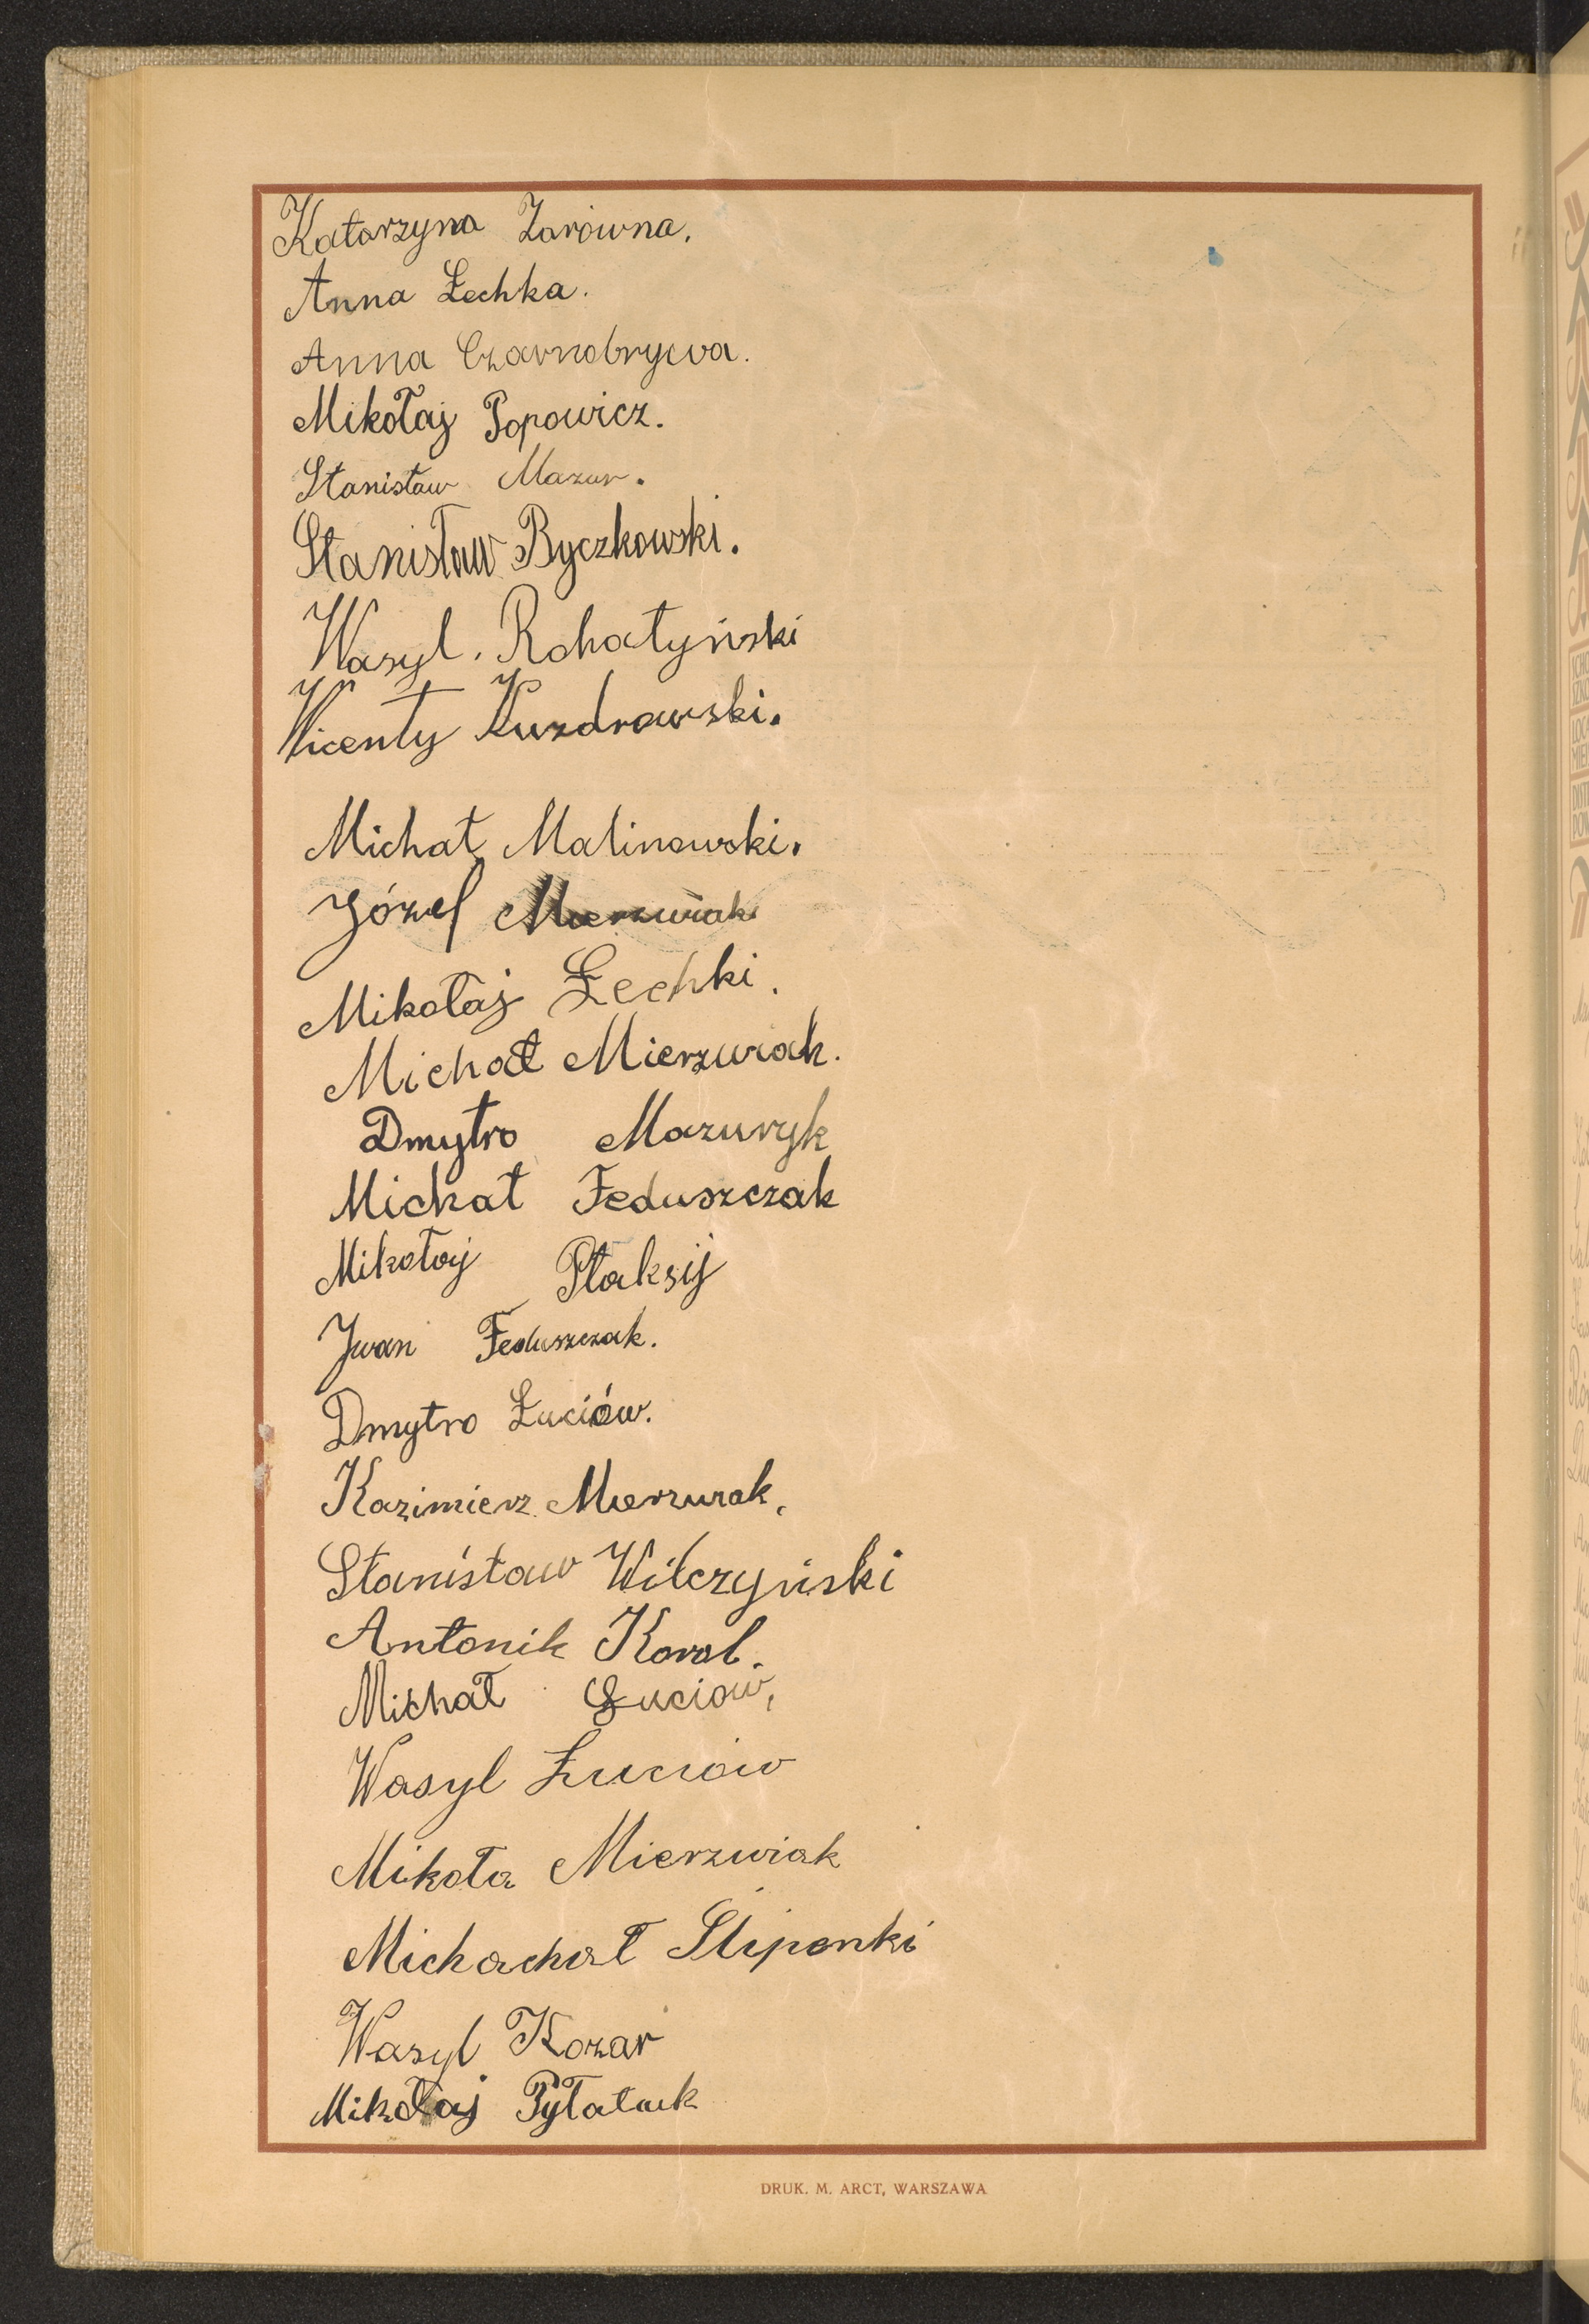 Katarzyna Zarówna.
Anna Łechka.
Anna Czarnobrywa.
Mikołaj Popowicz.
Stanisław Mazur.
Stanisław Byczkowski.
Wasyl. Rohatyński
Wicenty Kuzdrowski.
Michał Malinowski.
Józef Mierzwiak
Mikołaj Łechki.
Michał Mierzwiak.
Dmytro Mazuryk
Michał Feduszczak
Mikołaj Płaksij
Jwan Feduszczak.
Dmytro Łuciów.
Kazimierz Mierzwiak.
Stanisław Wilczyński
Antonik Korol.
Michał Łuciow,
Wasyl Łuciów
Mikoła Mierzwiak
Michachał Slipenki
Wasyl Kozar
Mikołaj Pyłatuk
DRUK. M. ARCT, WARSZAWA